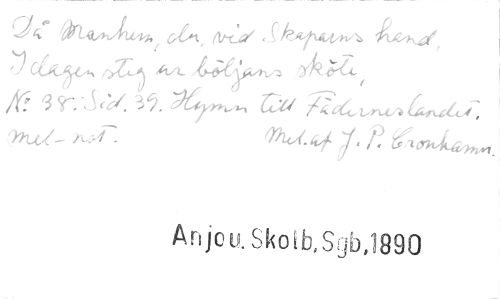 Då Manhem, du, vid Skaparns hand,
I dagen steg ur böljans sköte,
No 38. Sid. 39. Hymn till Fäderneslandet.
mel-not. Mel. af J. P. Cronhamn.
Anjou. Skolb, Sgb, 1890